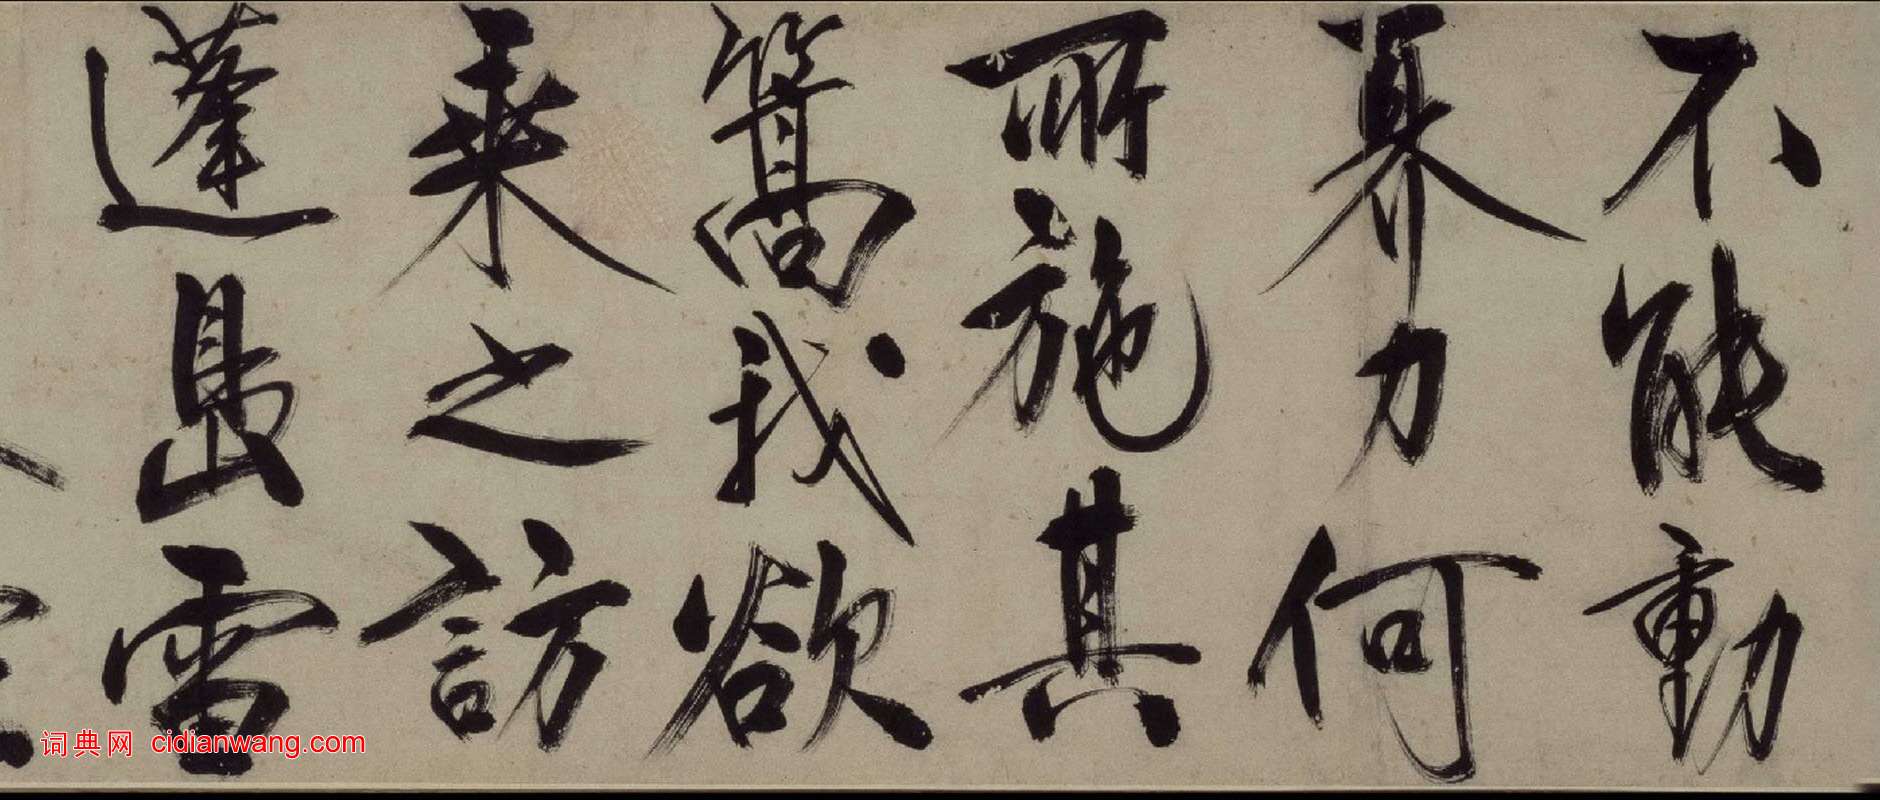 不能動
奡力何
所施其
篙我欲
乘之訪
蓬島雪
词典网 cidianwang.com